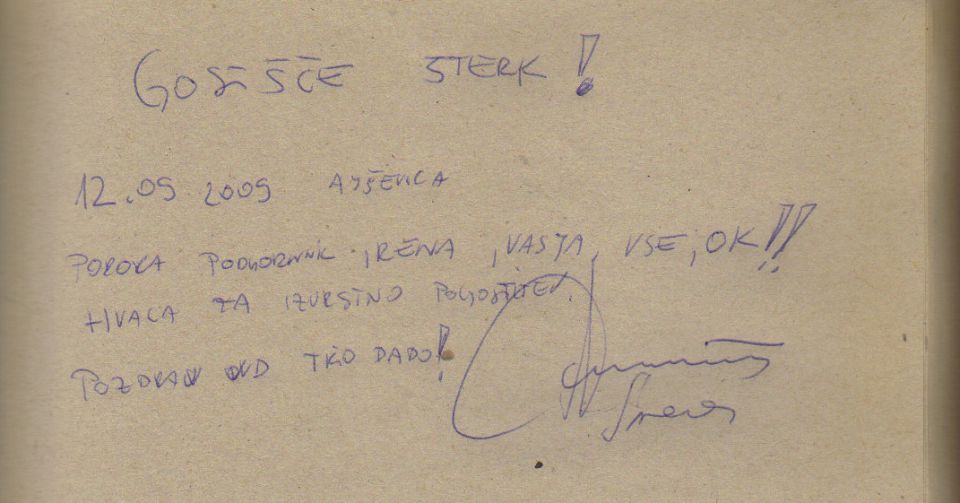 GOSIŠČE STERK!
12.09 2009 AJŠEVICA
POROKA PODGORNIK IRENA, VASJA, VSE, OK!!
HVALA ZA IZVRSTNO POGOSTITEV.
POZDRAV OD TRIO DADO!